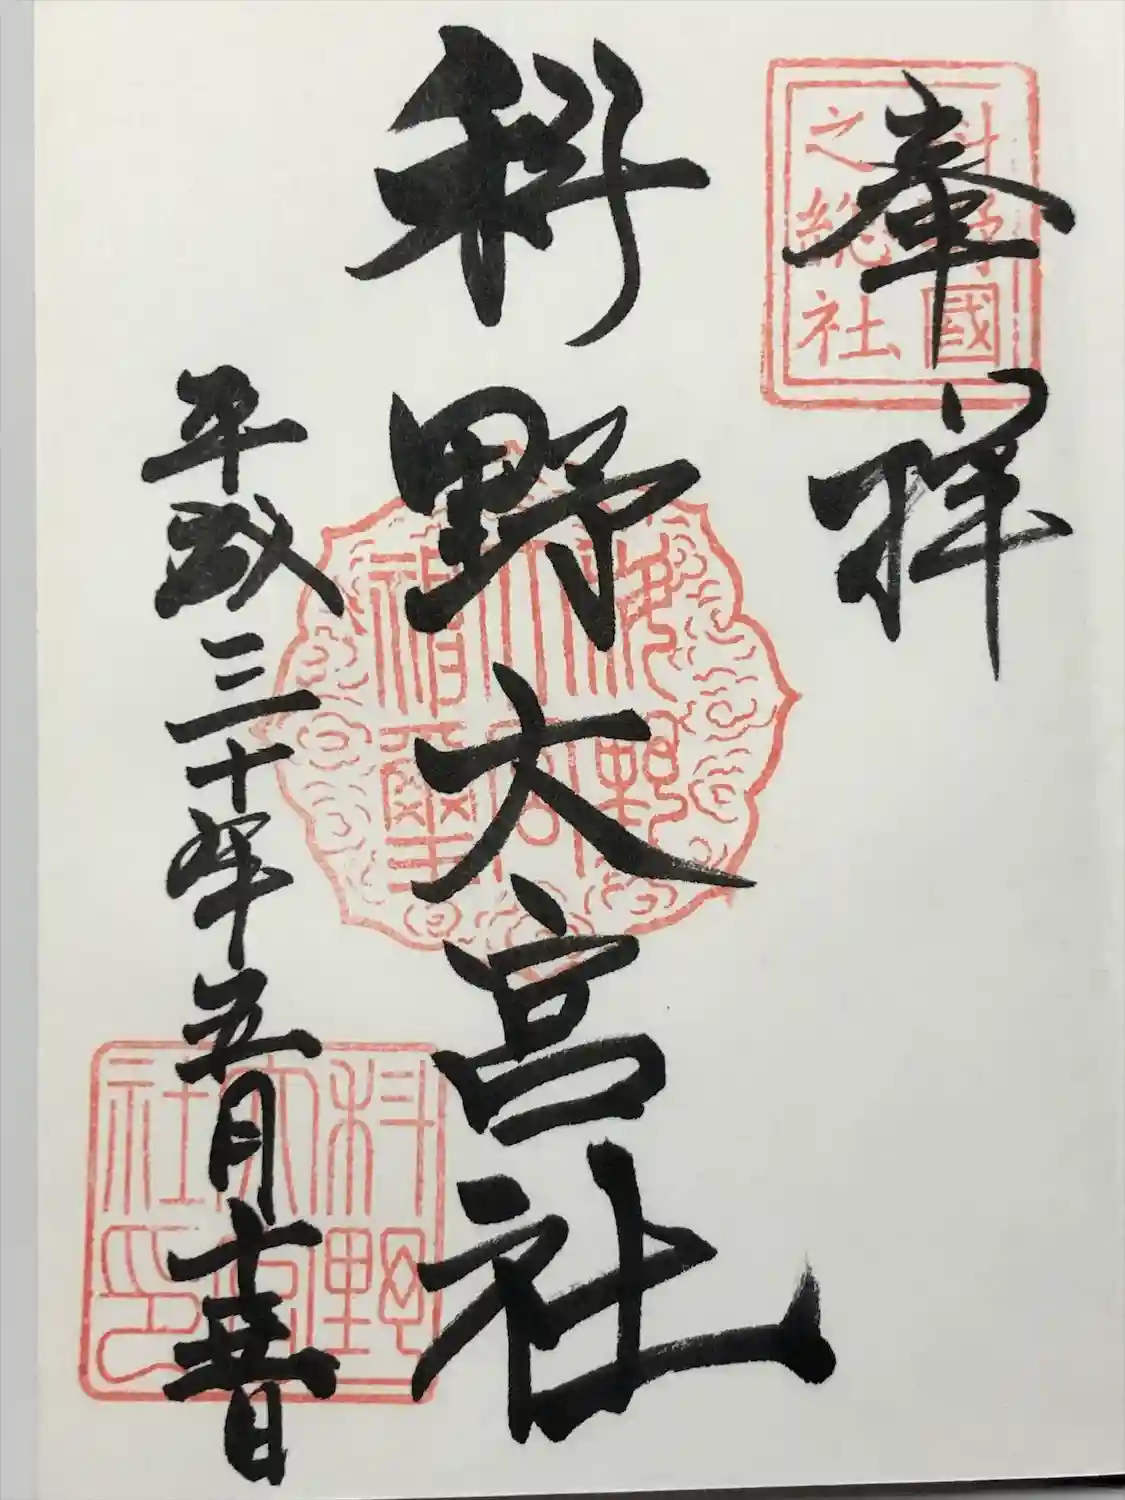 奉拝
科野國
之総社
科野大宮社
平成三十年五月十五日
科野
大宮
社印